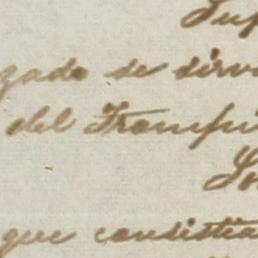 Sup
zado de sirv
del Transfu
So
que consistia